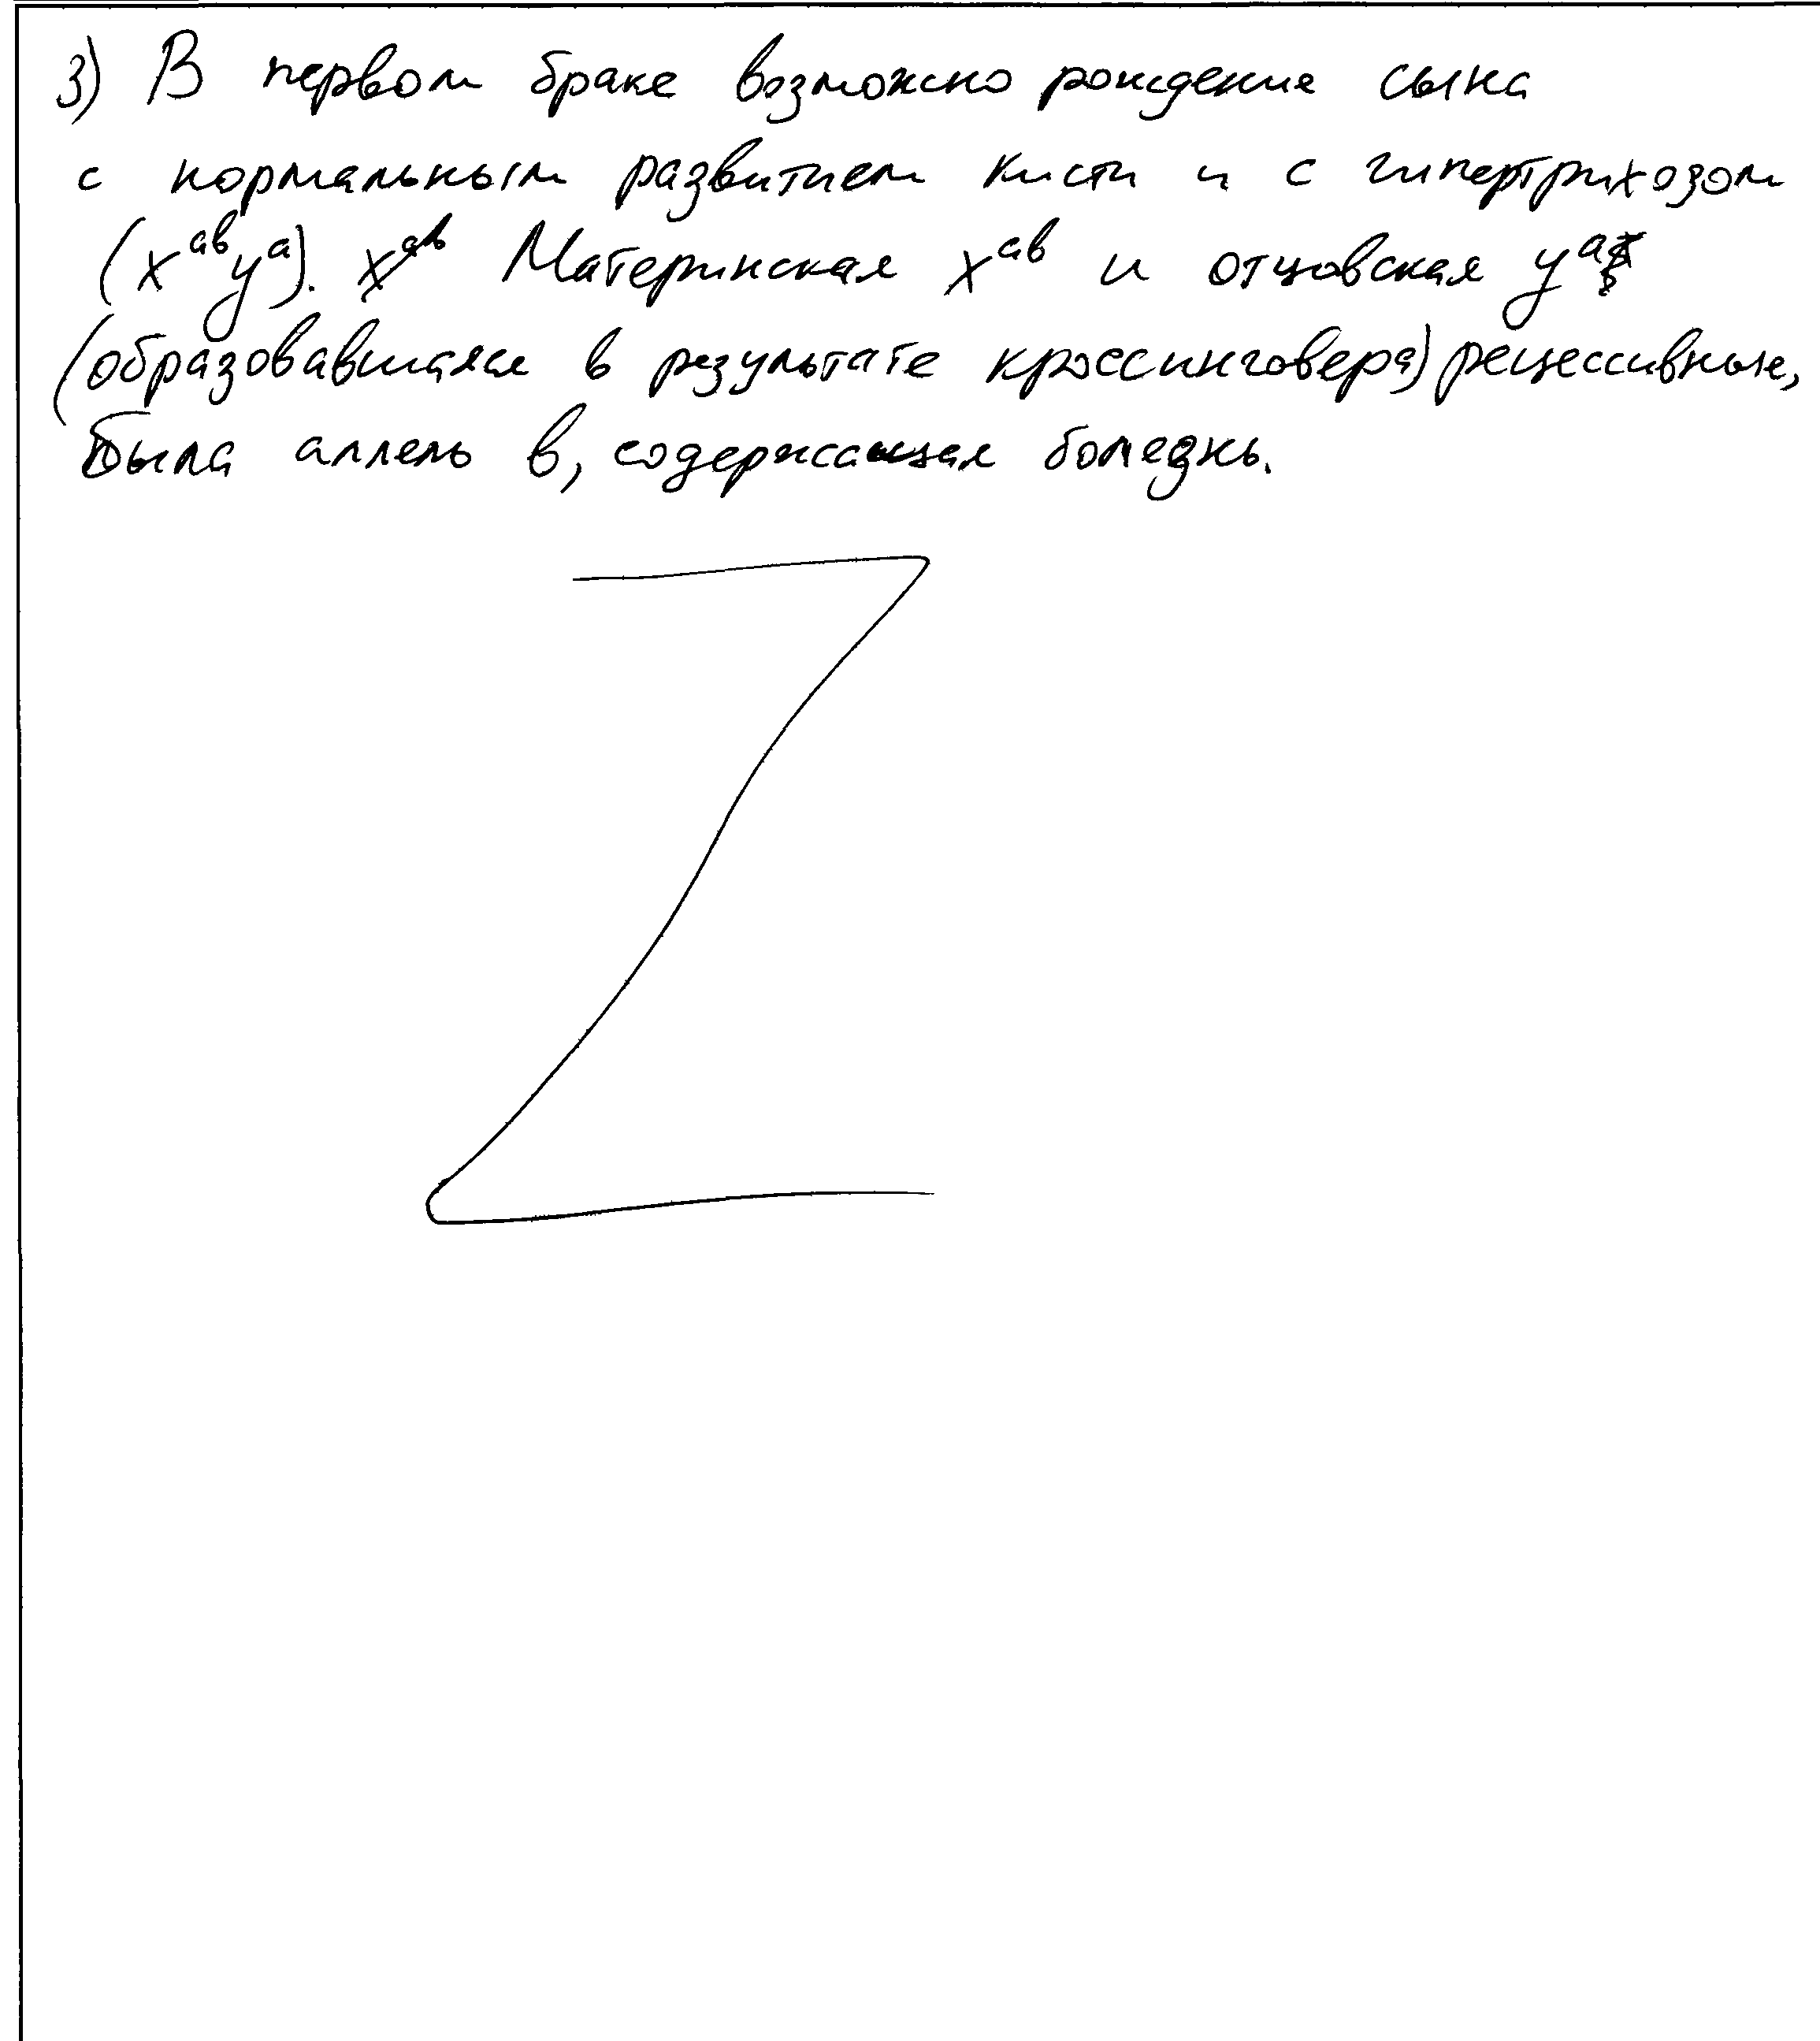 3) В первом браке возможно рождение сына
с нормальным развитием кисти и с гипертрихозом
(x^ab y^a). x^ab Материнская x^ab и отцовская y^a
(образовавшаяся в результате кроссинговера) рецессивные,
была аллель в, содержащая болезнь.